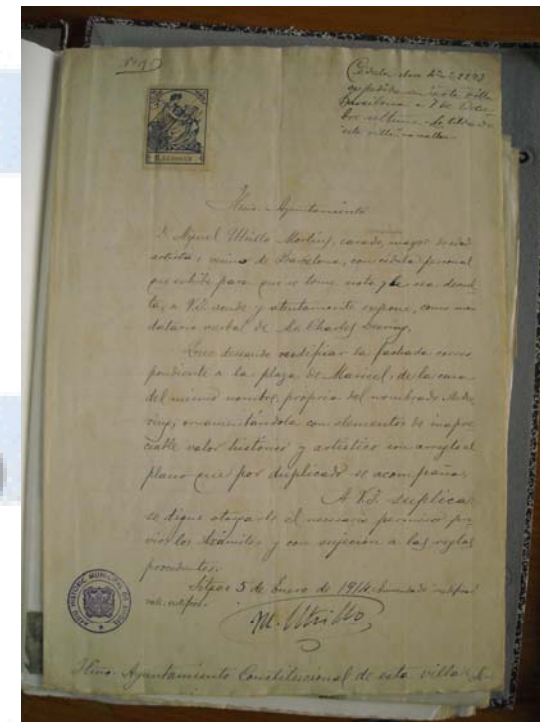 Cédula
expedida en esta villa
Barcelona a 7 de Diciem
bre último
esta villa
Iltmo. Ayuntamiento
D. Miguel Utrillo Morlius, casado, mayor de edad
artista, vecino de Barcelona, con cédula personal
que exhibe para que se tome nota y le sea devuel
ta, a V.S. acude y atentamente expone, como man
datario verbal de Mr. Charles Deering,
Que deseando modificar la fachada corres
pondiente a la plaza de Maricel, de la casa
del mismo nombre, propia del nombrado Mr. Dee
ring, ornamentándola con elementos de inapre
ciable valor histórico y artístico con arreglo al
plano que por duplicado se acompaña,
A V.S. suplica
se digne otorgarle el necesario permiso pre
vios los trámites y con sujeción a las reglas
procedentes.
Sitges 5 de Enero de 1914
M. Utrillo
Iltmo. Ayuntamiento Constitucional de esta villa